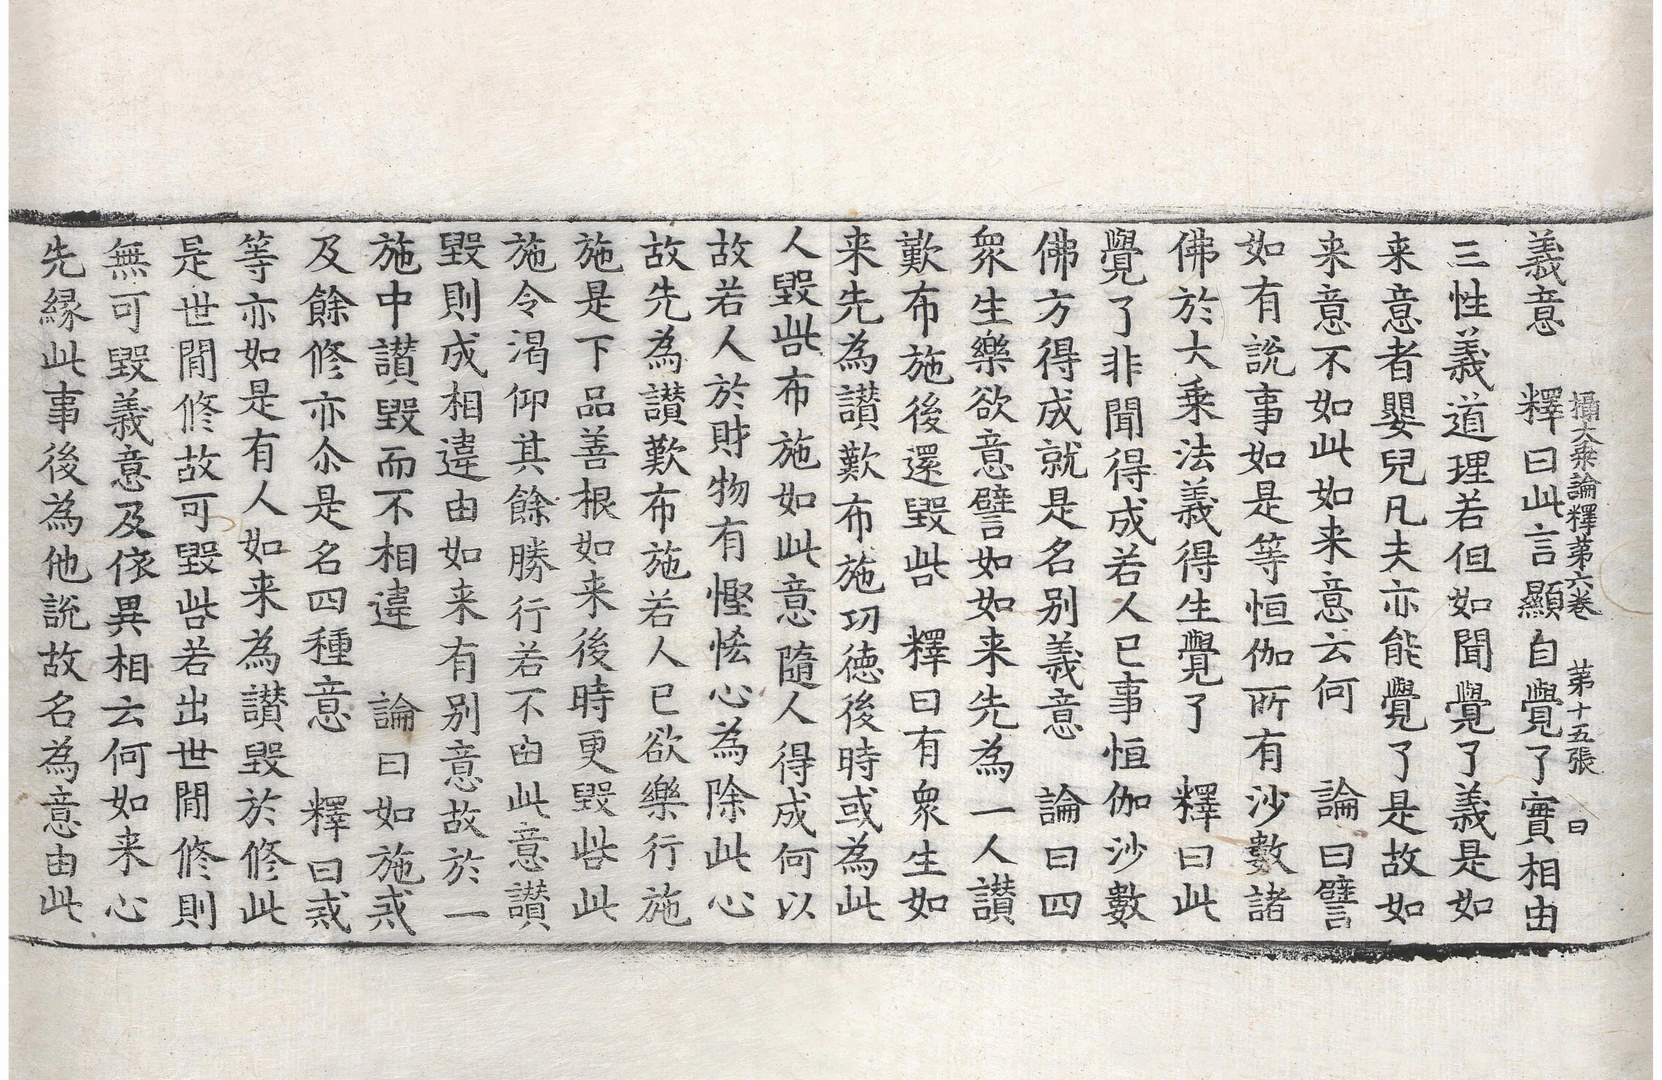 攝大乘論釋第六卷　第十五張　曰
義意　釋曰此言顯自覺了實相由
三性義道理若但如聞覺了義是如
来意者嬰兒凡夫亦能覺了是故如
来意不如此如来意云何　論曰譬
如有說事如是等恒伽所有沙數諸
佛於大乗法義得生覺了　釋曰此
覺了非聞得成若人已事恒伽沙數
佛方得成就是名别義意　論曰四
衆生樂欲意譬如如来先為一人讃
歎布施後還毀呰　釋曰有衆生如
来先為讃歎布施功徳後時或為此
人毀呰布施如此意隨人得成何以
故若人於財物有慳悋心為除此心
故先為讃歎布施若人已欲樂行施
施是下品善根如来後時更毀呰此
施令渴仰其餘勝行若不由此意讃
毀則成相違由如来有别意故於一
施中讃毀而不相違　論曰如施戒
及餘修亦尒是名四種意　釋曰戒
等亦如是有人如来為讃毀於修此
是世間修故可毀呰若出世間修則
無可毀義意及依異相云何如来心
先緣此事後為他說故名為意由此